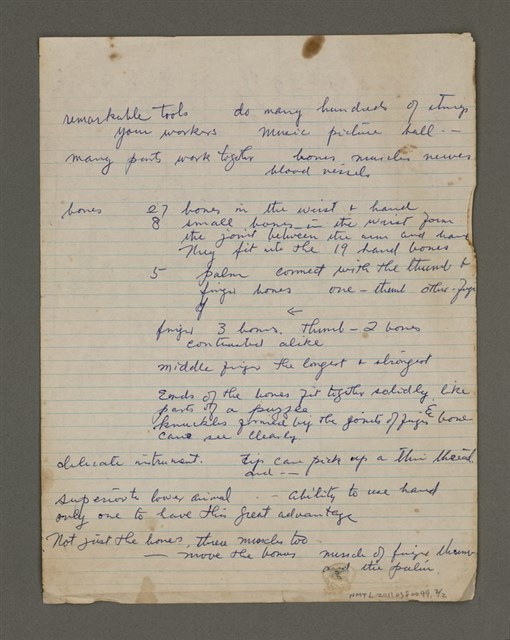 remarkable tools do many hundreds of things
your workers music picture ball --
many parts work together bones muscles nerves
blood vessels
bones 27 bones in the wrist & hand
8 small bones in the wrist form
the joint between the arm and hand
They fit into the 19 hand bones
5 palm connect with the thumb &
finger bones one - thumb other - fingers
finger 3 bones. Thumb - 2 bones
contructed alike
middle finger the longest & strongest
Ends of the bones fit together solidly like
parts of a puzzle
knuckles formed by the joints of finger & bone
can see clearly
delicate instrument. tips can pick up a thin thread.
and --
superior to lower animal -- Ability to use hand
only one to have this great advantage
Not just the bones, there muscles too
— move the bones muscle of finger thumb
and the palm